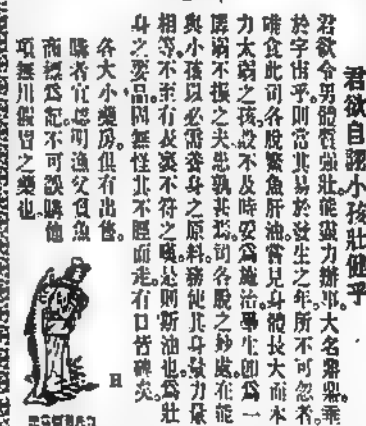 君欲自認小孩壯健乎
君欲令男體質強壯能盡力辦事大名鼎鼎乘
於宇宙乎則當其易於發生之年所不可忽者
唯食此司各脫繁魚肝油嘗見身體長大而本
力太弱之孩設不及時妥為施治畢生即為一
孱弱不振之夫患孰甚焉司各脫之妙處在能
與小孩以必需養身之原料務使其身量力量
相等不至有表裏不符之嘆是則斯油也為壯
身之要品固無怪其不脛而走有口皆碑矣
各大小藥房俱有出售
購者宜認明漁父負魚
商標為記不可誤購他
項無川假冒之藥也
H